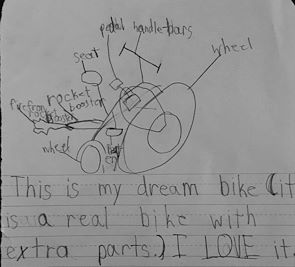 pedal handle-bars
seat
wheel
rocket
booster
fire from
rocket
booster
wheel
This is my dream bike (it
is a real bike with
extra parts.) I LOVE it.